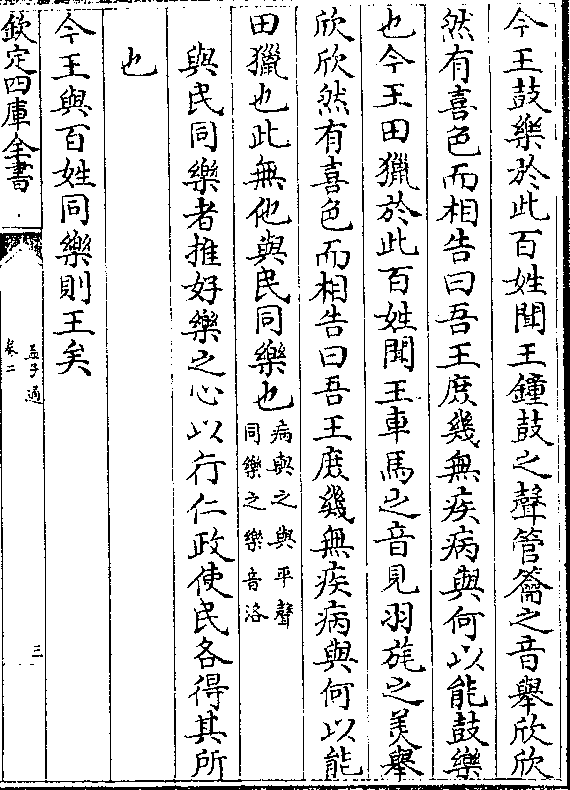 今王鼓樂於此百姓聞王鐘鼓之聲管籥之音舉欣欣
然有喜色而相告曰吾王庶幾無疾病與何以能鼓樂
也今王田獵於此百姓聞王車馬之音見羽旄之美舉
欣欣然有喜色而相告曰吾王庶幾無疾病與何以能
田獵也此無他與民同樂也
病與之與平聲
同樂之樂音洛
與民同樂者推好樂之心以行仁政使民各得其所
也
今王與百姓同樂則王矣
欽定四庫全書
孟子通
卷二
三